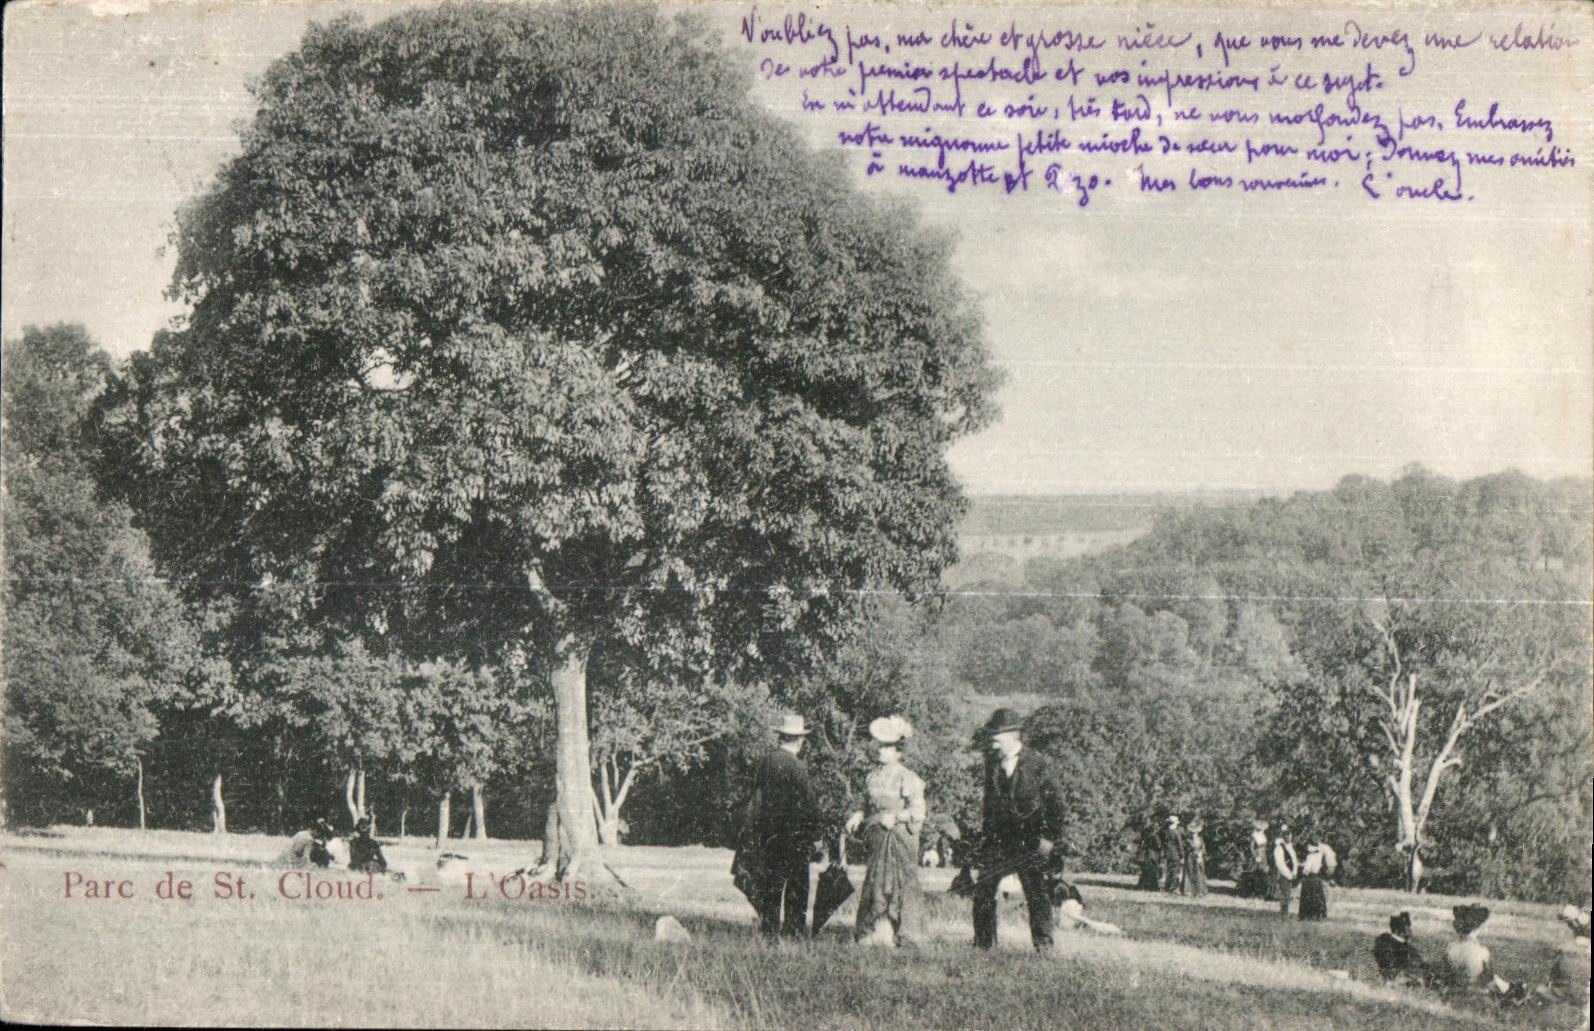 N'oubliez pas, ma chère et grosse nièce, que vous me devez une relation
de votre premier spectacle et vos impressions à ce sujet.
En m'attendant ce soir, très tard, ne vous morfondez pas. Embrassez
votre mignonne petite mioche de sœur pour moi; Donnez mes amitiés
à manzotte et Zizo. Mes bons souvenirs. L'oncle.
Parc de St. Cloud. — L'Oasis.